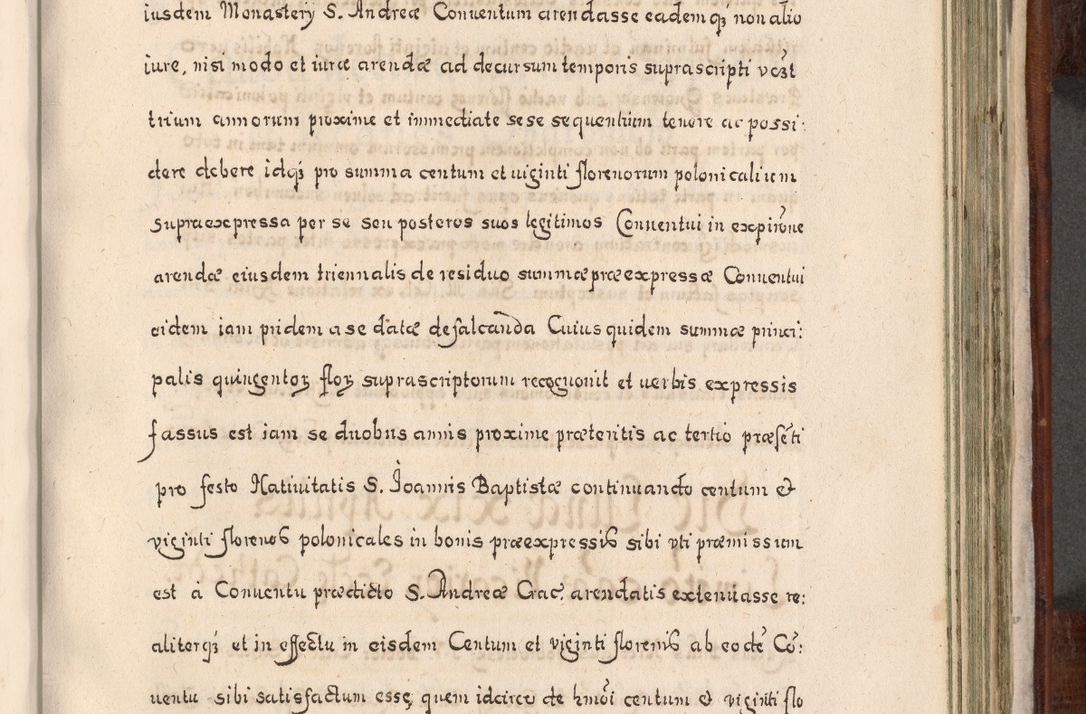 iusdem Monastery S. Andreæ Conuentum arendasse eademq́ non alio
iure, nisi modo et iuræ arendæ ad decursum temporis suprascripti vczt
trium annorum proxime et immediate sese sequentium tenere ac possi:
dere debere idq́ pro summa centum et uiginti florenorum polonicalium
supraexpressa per se seu posteros suos legitimos Conuentui in expirõne
arendæ eiusdem triennalis de residuo summæ præexpressæ Conuentui
eidem iam pridem a se datæ defalcanda Cuius quidem summæ princi:
palis quingentoꝝ floꝝ suprascriptorum recognouit et uerbis expressis
fassus est iam se duobus annis proxime præteritis ac tertio præsẽti
pro festo Natiuitatis S. Joannis Baptistæ continuando centum et
viginti florenos polonicales in bonis præexpressis sibi vti præmissum
est à Conuentu prædicto S. Andreæ Crac. arendatis extenuasse re:
aliterq́ et in effectu in eisdem Centum et viginti florenis ab eodẽ Cõ:
uentu sibi satisfactum esse, quem idcirco de hmõi centum et viginti flo